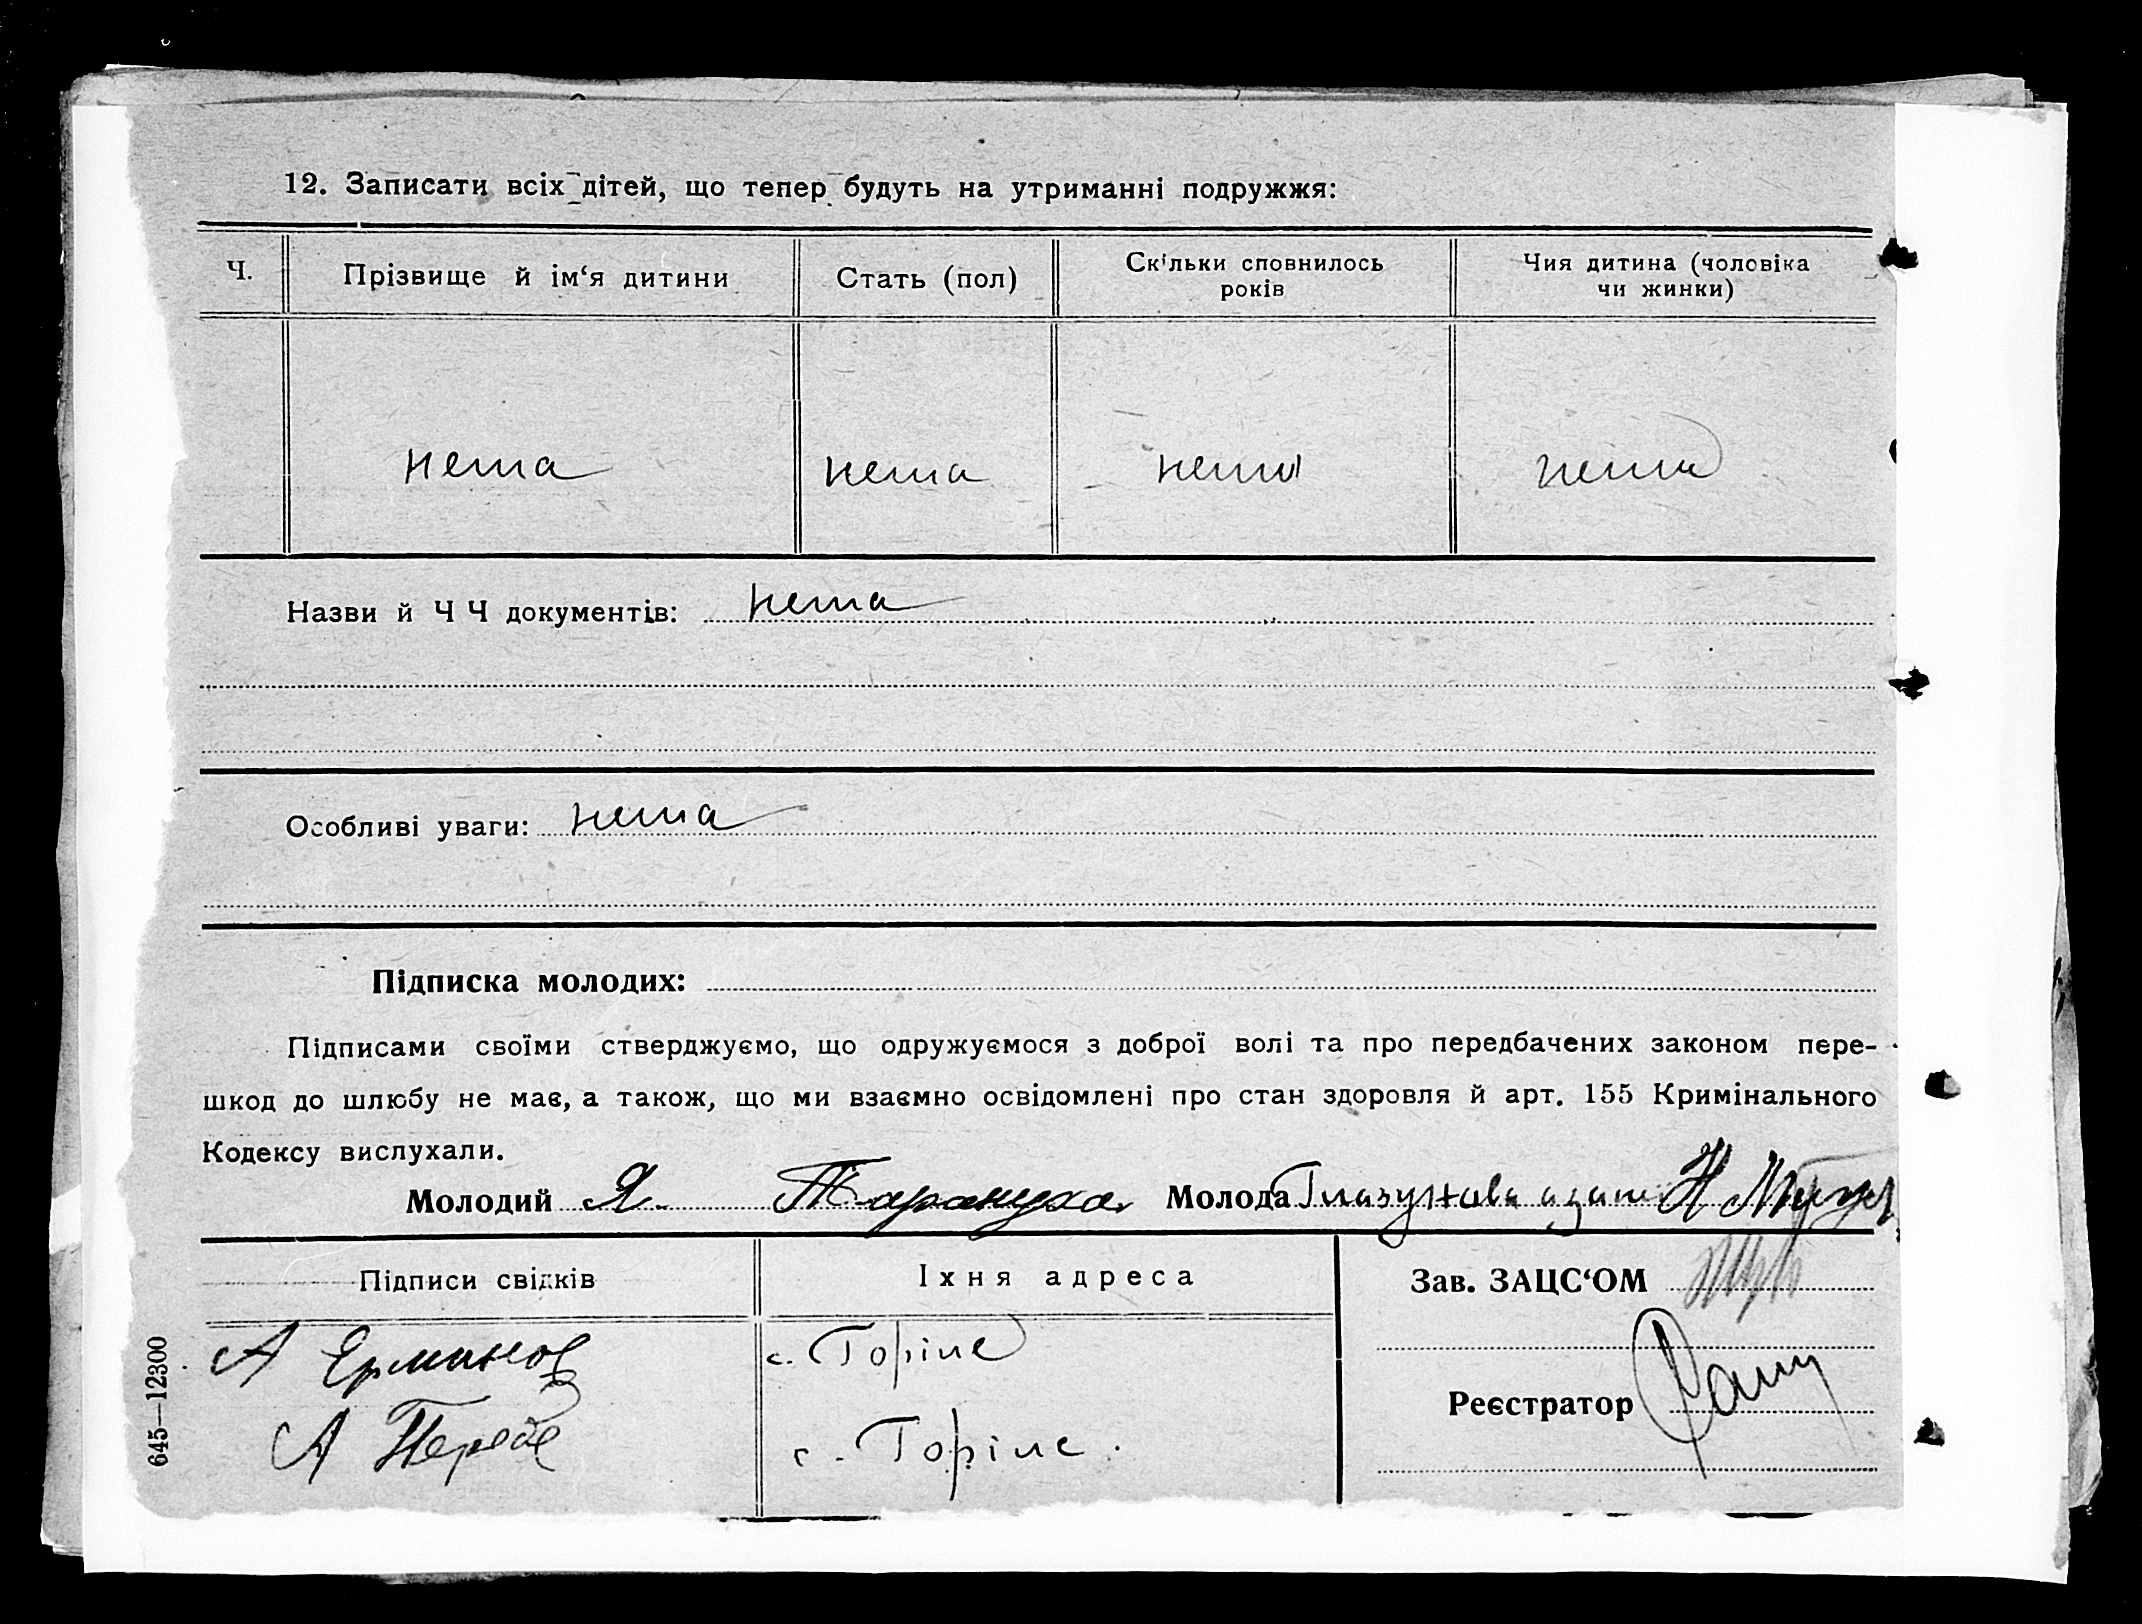 12. Записати всіх дітей, що тепер будуть на утриманні подружжя:
Ч. Прізвище й ім‘я дитини Стать (пол) Скільки сповнилось років Чия дитина (чоловіка чи жинки)
нема нема нема нема
Назви й Ч Ч документів: нема
Особливі уваги: нема
Підписка молодих:
Підписами своїми стверджуємо, що одружуємося з доброї волі та про передбачених законом пере-
шкод до шлюбу не має, а також, що ми взаємно освідомлені про стан здоровля й арт. 155 Кримінального
Кодексу вислухали.
Молодий Я. Тарануха Молода Глазунова
Підписи свідків Їхня адреса Зав. ЗАЦС‘ОМ
А Ерминов с. Горіле
Реєстратор
А с. Горіле.
645—12300